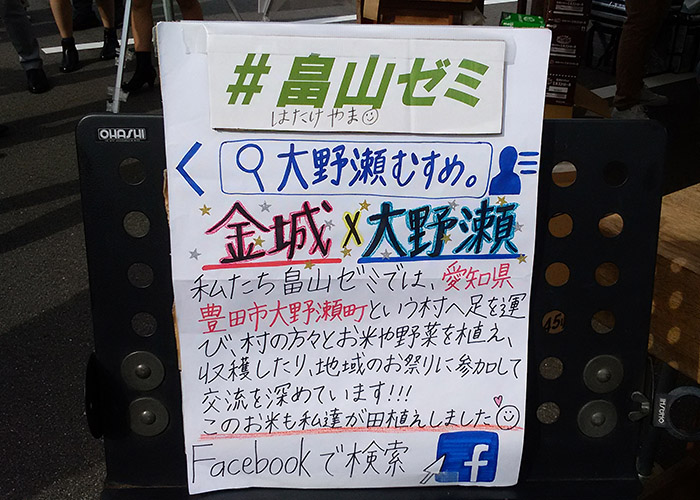 #畠山ゼミ
はたけやま
OHASHI
大野瀬むすめ。
金城×大野瀬
私たち畠山ゼミでは、愛知県
豊田市大野瀬町という村へ足を運
び、村の方々とお米や野菜を植え、
収穫したり、地域のお祭りに参加して
交流を深めています!!!
このお米も私達が田植えしました
Facebookで検索
f